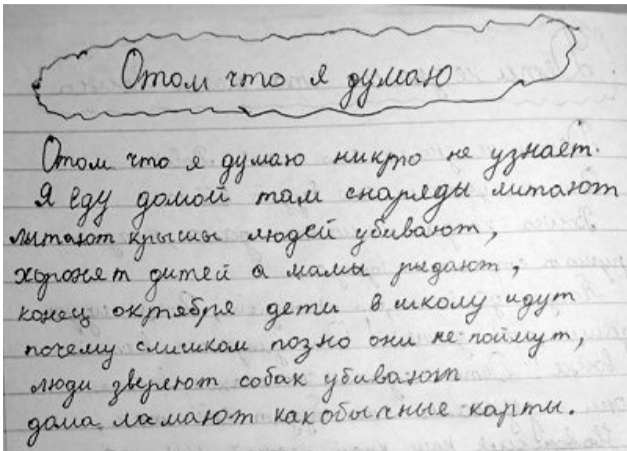 Отом что я думаю
Отом что я думаю никто не узнает.
Я еду домой там снаряды литают
литают крысы людей убивают,
хоронят дитей а мамы рыдают,
конец октября дети в школу идут
почему слишком позно они не поймут,
люди звереют собак убивают
дама ламают какобычные карты.